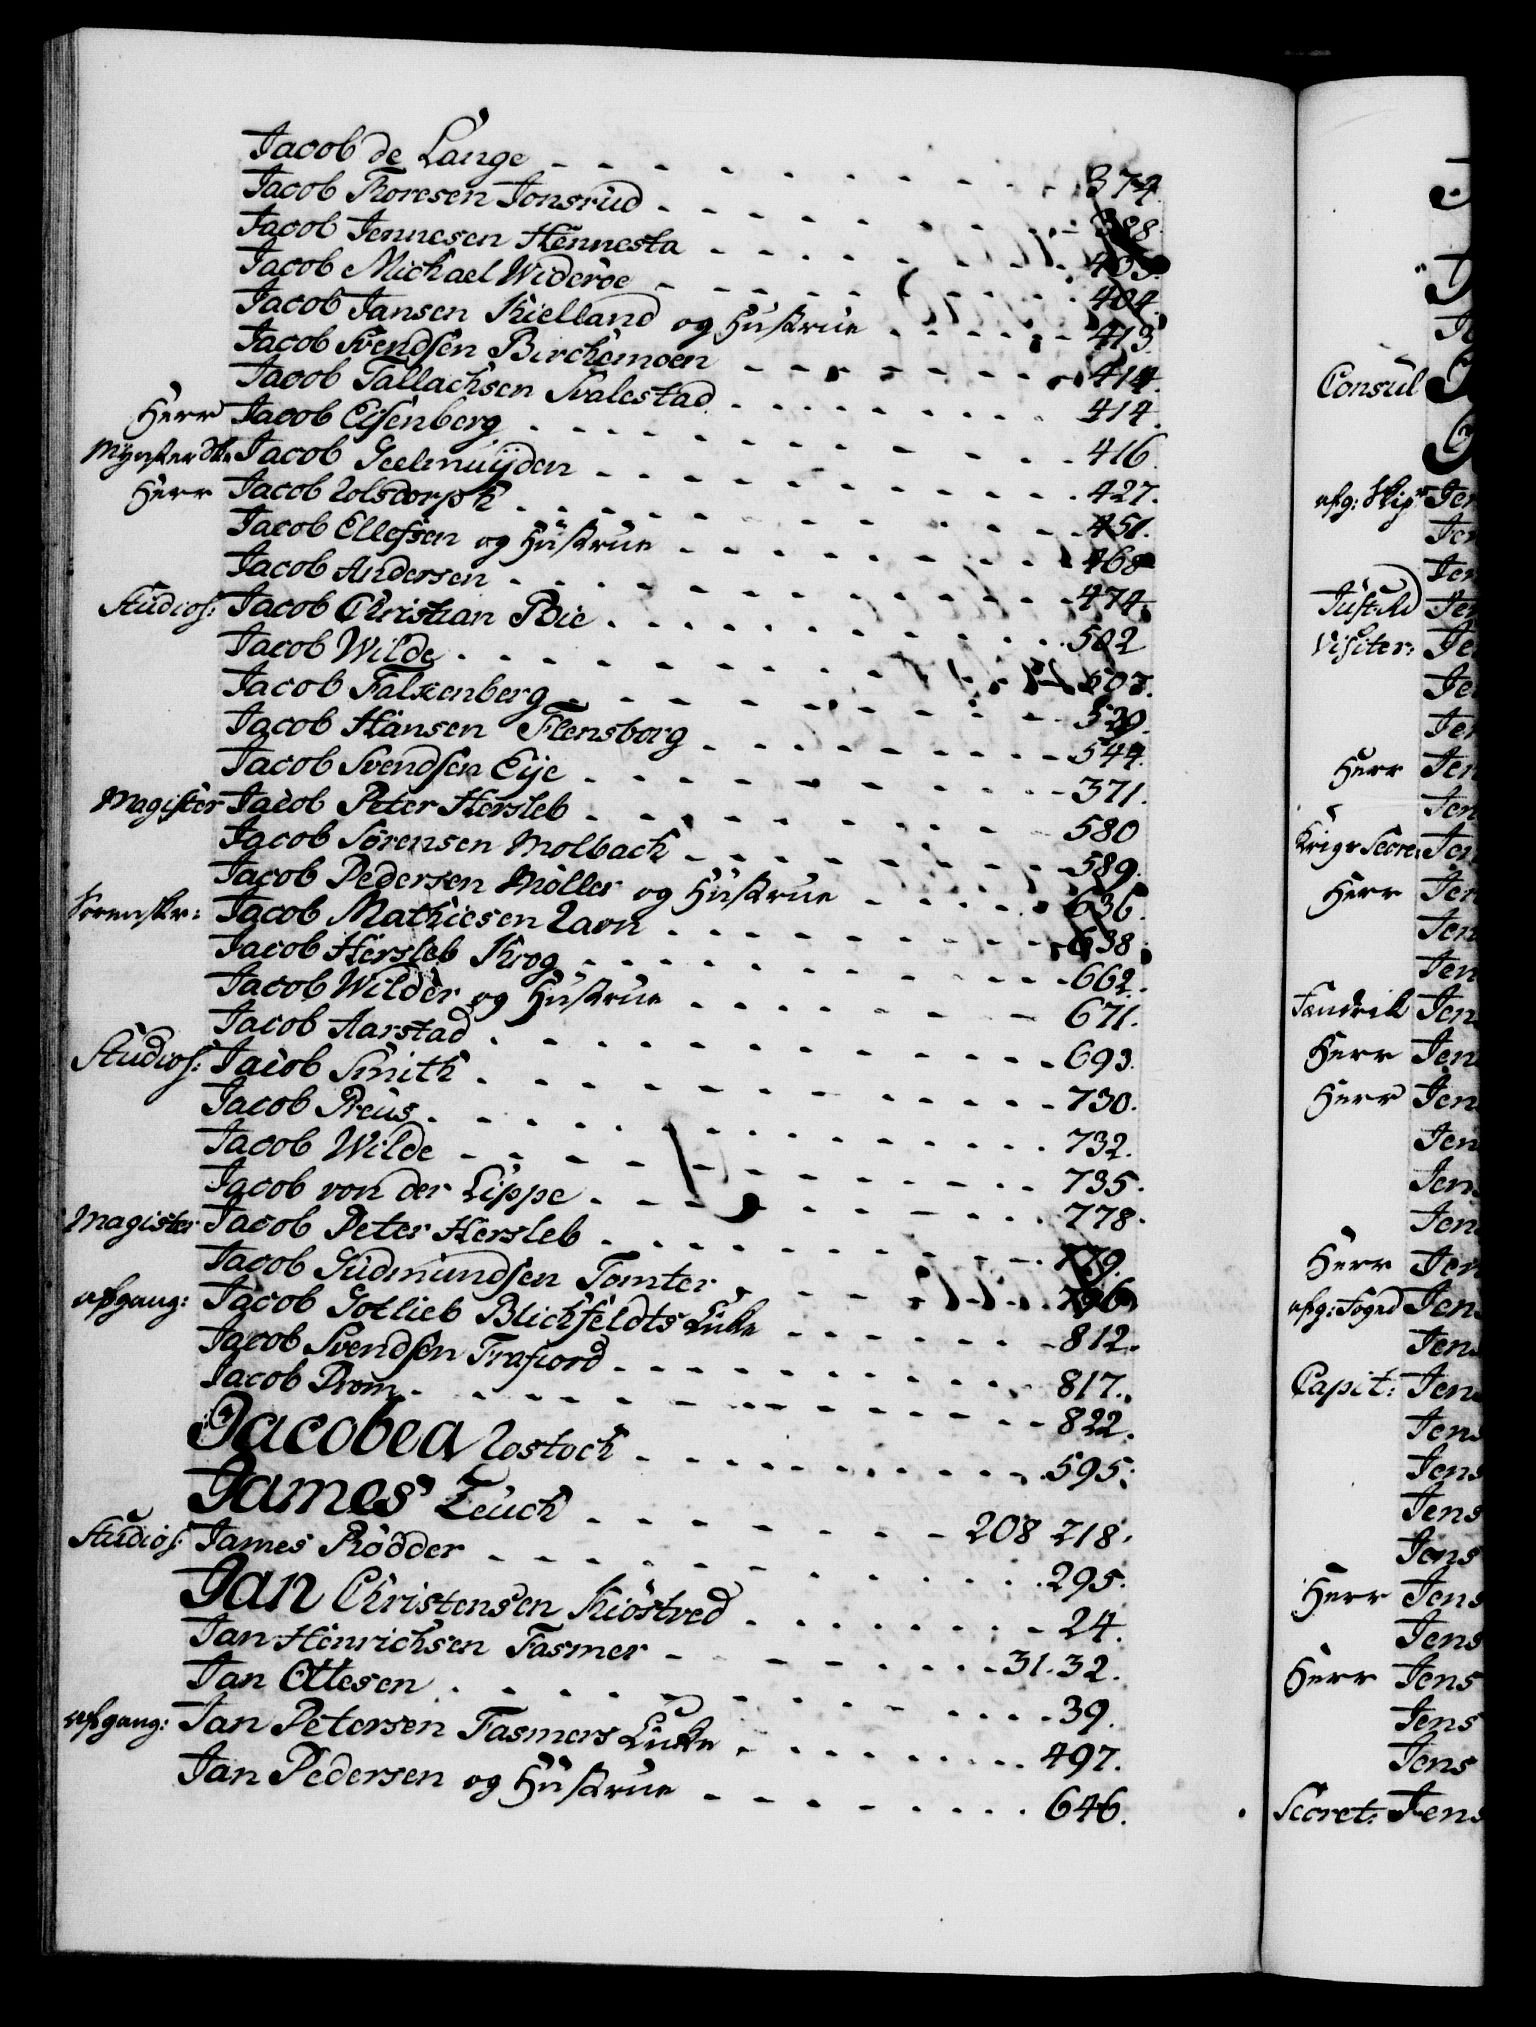 Jacob de Lange - - - - - - - - - 374.
Jacob Thoresen Jonsrud - - - - - - - - 388.
Jacob Jennesen Hennesta - - - - - - - 403.
Jacob Michael Wideröe - - - - - - - - 404.
Jacob Jansen Kielland og Hustrue - - - - - 413.
Jacob Svendsen Birchemoen - - - - - - - 414.
Jacob Tallachsen Svalestad - - - - - - - 414.
Herr Jacob Eisenberg - - - - - - - - - 416.
Mynsterskr. Jacob Geelmuijden - - - - - - - - 427.
Herr Jacob Rolsdorph - - - - - - - - 451.
Jacob Ellefsen og Hustrue - - - - - - - 468
Jacob Andersen - - - - - - - - - 474.
Studios: Jacob Christian Bie - - - - - - - - 502
Jacob Wilde - - - - - - - - - 507.
Jacob Falkenberg - - - - - - - - - 529.
Jacob Hansen Flensborg - - - - - - - - 544.
Jacob Svendsen Eije - - - - - - - - 371.
Magister Jacob Peter Hersleb - - - - - - - - 580
Jacob Sörensen Molbach - - - - - - - - 589.
Jacob Pedersen Möller og Hustrue - - - - - 636.
Sorenskr: Jacob Mathiesen Ravn - - - - - - - - 638.
Jacob Hersleb Krog - - - - - - - - 662.
Jacob Wilder og Hustrue - - - - - - - 671.
Jacob Aarstad - - - - - - - - - 693.
Studios: Jacob Smith - - - - - - - - - 730.
Jacob Preus - - - - - - - - - 732.
Jacob Wilde - - - - - - - - - 735.
Jacob von der Lippe - - - - - - - - 778.
Magister Jacob Peter Hersleb - - - - - - - - 779.
Jacob Gudmundsen Tomter - - - - - - - 796
afgang: Jacob Gotlieb Blichfeldts Enke - - - - - - 812.
Jacob Svendsen Frafiord - - - - - - - 817.
Jacob Prom - - - - - - - - - 822.
Jacobea Rostoch - - - - - - - - 595.
James Leuch - - - - - - - 208 218.
Studios: James Rödder - - - - - - - - 295.
Jan Christensen Kiöstved - - - - - - - 24.
Jan Henrichsen Fasmer - - - - - - - 31. 32.
Jan Ottesen - - - - - - - - - 39.
afgang: Jan Petersen Fasmers Enke - - - - - - 497.
Jan Pedersen og Hustrue - - - - - - - 646.
Consul
afg: Skip
Justitsr
Visiter:
Herr Jen
Krigs Secre: Jen
Herr Jen
Jen
Jen
Fendrik Jen
Herr Jen
Herr Jen
Jen
Jen
Jen
Herr Jen
afg: Foged Jen
Jens
Capit: Jen
Jens
Jens
Jens
Jens
Herr Jens
Jens
Herr Jens
Jens
Jens
Secret: Jens